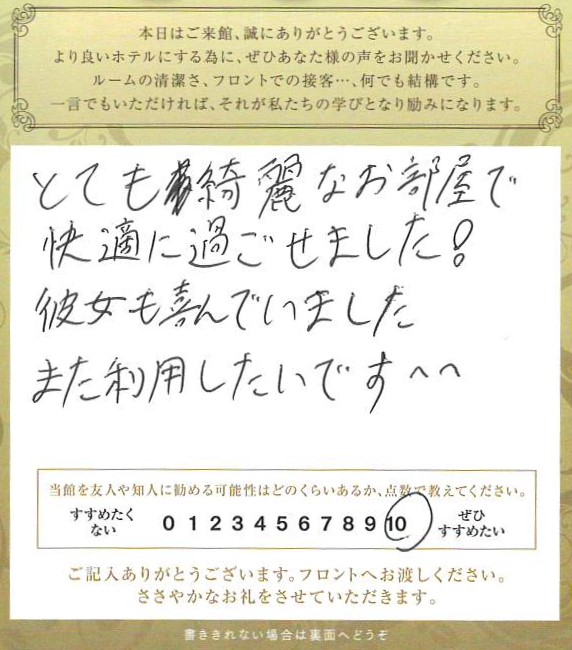 本日はご来館、誠にありがとうございます。
より良いホテルにする為に、ぜひあなた様の声をお聞かせください。
ルームの清潔さ、フロントでの接客…、何でも結構です。
一言でもいただければ、それが私たちの学びとなり励みになります。
とても綺麗なお部屋で
快適に過ごせました!
彼女も喜んでいました
また利用したいです^^
当館を友人や知人に勧める可能性はどのくらいあるか、点数で教えてください。
すすめたくない 0 1 2 3 4 5 6 7 8 9 10 ぜひすすめたい
ご記入ありがとうございます。フロントへお渡しください。
ささやかなお礼をさせていただきます。
書ききれない場合は裏面へどうぞ